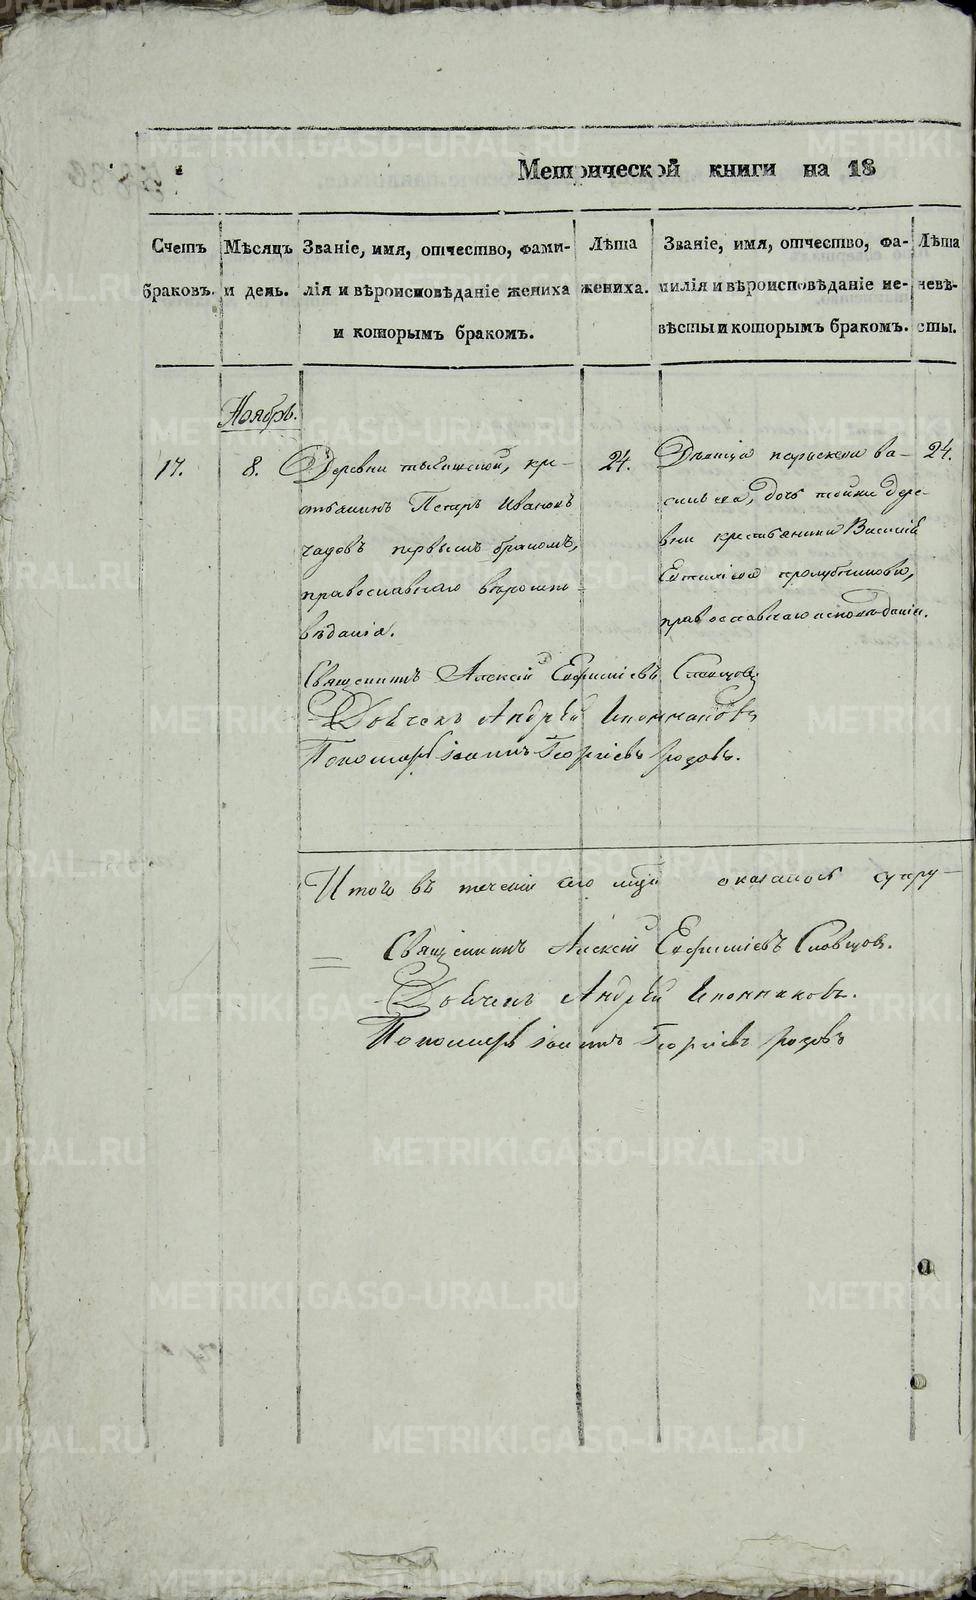 Метрической книги на 18
Счетъ браковъ.
Мѣсяцъ и день.
Званіе, имя, отчество, фами-
лія и вѣроисповѣданіе жениха
и которымъ бракомъ.
Лѣта жениха.
Званіе, имя, отчество, фа-
милія и вѣроисповѣданіе не-
вѣсты и которымъ бракомъ.
Лѣта невѣ-
сты.
Ноябрь.
17.
8.
Деревни кре-
стьянинъ Петръ Ивановъ
первымъ бракомъ,
православнаго вѣроиспо-
вѣданія.
24.
Дѣвица Параскева Ва-
сильева, дочь тойже дере-
вни крестьянина Василія
православнаго исповѣданія.
24.
Священникъ Алексій Евфиміевъ Словцовъ.
Дьячекъ Андрей Иконниковъ
Пономарь Іоаннъ Георгіевъ
Итого въ теченіи сего мца оказалось супру-
Священникъ Алексій Евфиміевъ Словцовъ.
Дьячекъ Андрей Иконниковъ.
Пономарь Іоаннъ Георгіевъ
METRIKI.GASO-URAL.RU